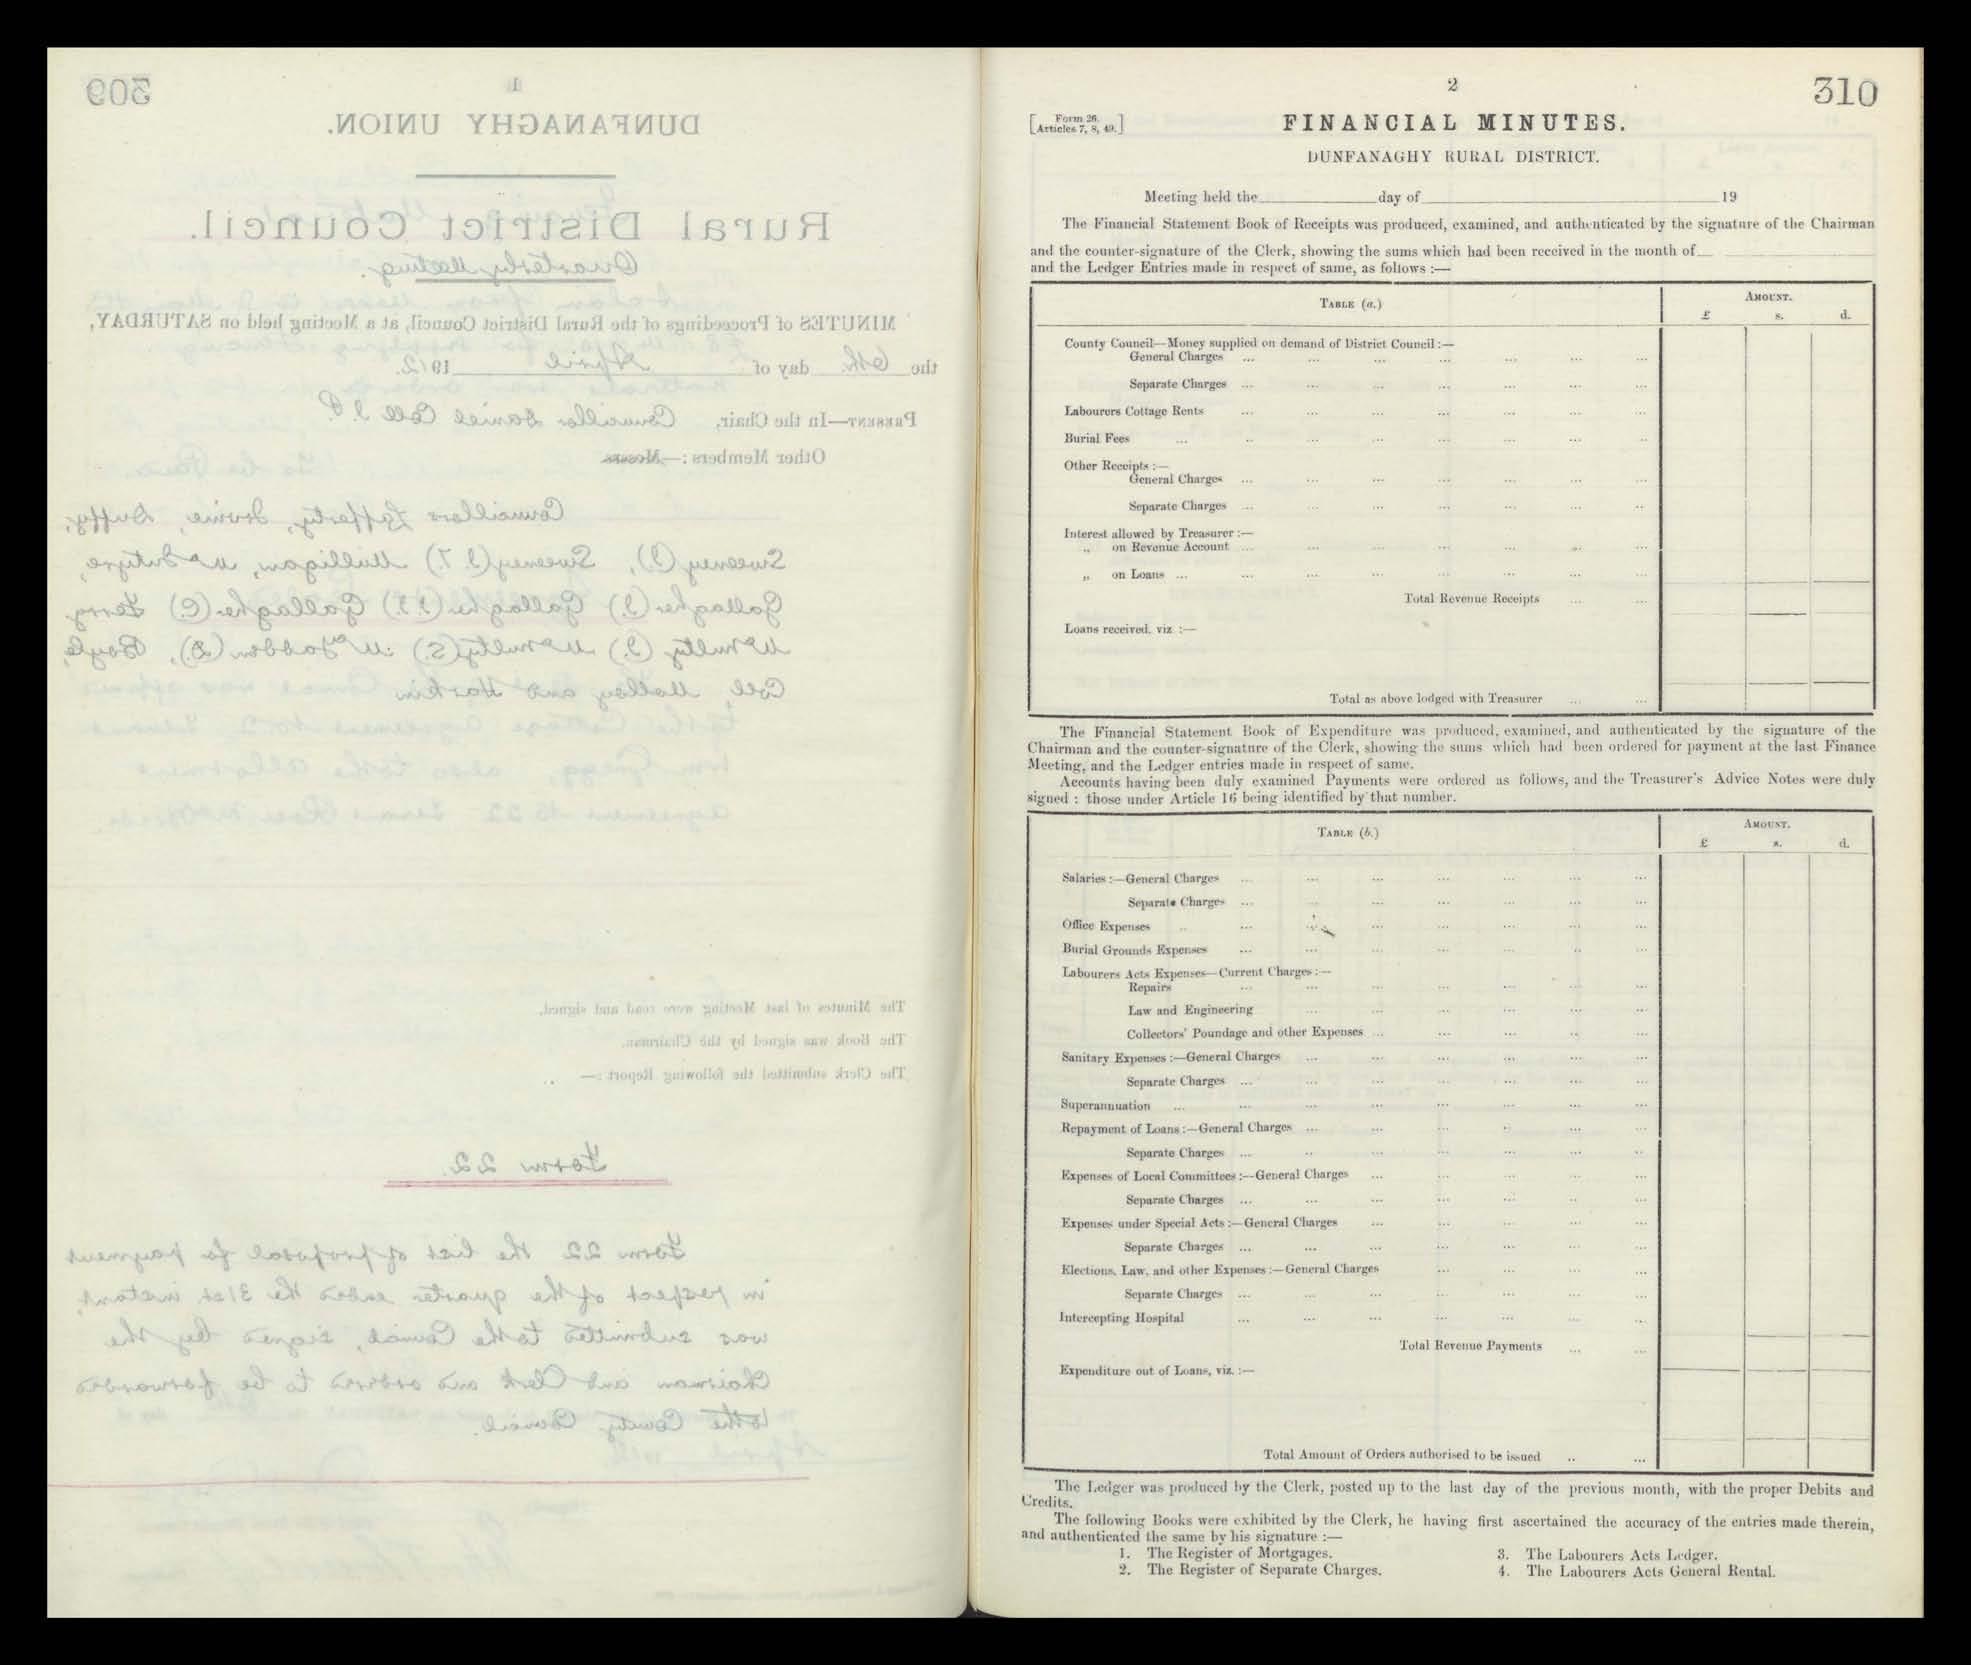 309
1
DUNFANAGHY UNION.
Rural District Council.
Quarterly Meeting.
MINUTES of Proceedings of the Rural District Council, at a Meeting held on SATURDAY,
the 6th day of April 1912.
PRESENT—In the Chair, Councillor Daniel Coll J.P.
Other Members:—Messrs
Councillors Lafferty, Irvine, Duffy,
Sweeney (J), Sweeney (J.T.) Mulligan, McIntyre,
Gallagher (J.) Gallagher (J.J.) Gallagher (C) Ferry
McNulty (J.) McNulty (S.) McFadden (D.), Boyle,
Coll, Molloy and Harkin
The Minutes of last Meeting were read and signed.
The Book was signed by the Chairman.
The Clerk submitted the following Report:—
Form 22.
Form 22 the list of proposal for payment
in respect of the quarter ended the 31st instant,
was submitted to the Council, signed by the
Chairman and Clerk and ordered to be forwarded
to the County Council.
2
310
[Form 26. Articles 7, 8, 49.]
FINANCIAL MINUTES.
DUNFANAGHY RURAL DISTRICT.
Meeting held the day of 19
The Financial Statement Book of Receipts was produced, examined, and authenticated by the signature of the Chairman
and the counter-signature of the Clerk, showing the sums which had been received in the month of
and the Ledger Entries made in respect of same, as follows :—
TABLE (a.)
AMOUNT.
£ s. d.
County Council—Money supplied on demand of District Council :—
General Charges
Separate Charges
Labourers Cottage Rents
Burial Fees
Other Receipts :—
General Charges
Separate Charges
Interest allowed by Treasurer :—
„ on Revenue Account
„ on Loans
Total Revenue Receipts
Loans received, viz :—
Total as above lodged with Treasurer
The Financial Statement Book of Expenditure was produced, examined, and authenticated by the signature of the
Chairman and the counter-signature of the Clerk, showing the sums which had been ordered for payment at the last Finance
Meeting, and the Ledger entries made in respect of same.
Accounts having been duly examined Payments were ordered as follows, and the Treasurer's Advice Notes were duly
signed : those under Article 16 being identified by that number.
TABLE (b.)
AMOUNT.
£ s. d.
Salaries :—General Charges
Separate Charges
Office Expenses
Burial Grounds Expenses
Labourers Acts Expenses—Current Charges :—
Repairs
Law and Engineering
Collectors' Poundage and other Expenses
Sanitary Expenses :—General Charges
Separate Charges
Superannuation
Repayment of Loans :—General Charges
Separate Charges
Expenses of Local Committees :—General Charges
Separate Charges
Expenses under Special Acts :—General Charges
Separate Charges
Elections, Law, and other Expenses :—General Charges
Separate Charges
Intercepting Hospital
Total Revenue Payments
Expenditure out of Loans, viz. :—
Total Amount of Orders authorised to be issued
The Ledger was produced by the Clerk, posted up to the last day of the previous month, with the proper Debits and
Credits.
The following Books were exhibited by the Clerk, he having first ascertained the accuracy of the entries made therein,
and authenticated the same by his signature :—
1. The Register of Mortgages.
2. The Register of Separate Charges.
3. The Labourers Acts Ledger.
4. The Labourers Acts General Rental.